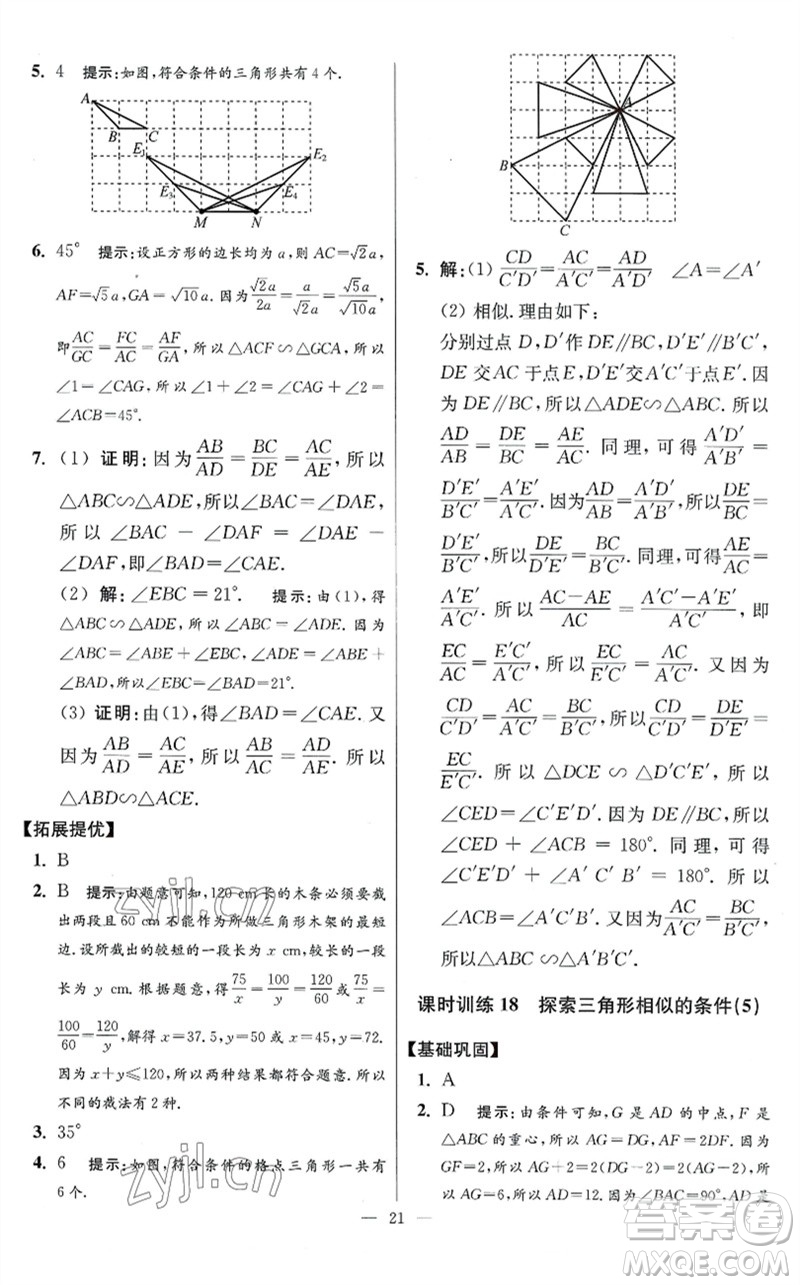 5. 4 提示:如图,符合条件的三角形共有4个.
A
B C
E₁ E₂
E₃ E₄
M N
6. 45° 提示:设正方形的边长均为a,则AC=√2a,
AF=√5a,GA=√10a.因为√2a/2a=a/√2a=√5a/√10a,
即AC/GC=FC/AC=AF/GA,所以△ACF∽△GCA,所以
∠1=∠CAG,所以∠1+∠2=∠CAG+∠2=
∠ACB=45°.
7. (1) 证明:因为AB/AD=BC/DE=AC/AE,所以
△ABC∽△ADE,所以∠BAC=∠DAE,
所以∠BAC-∠DAF=∠DAE-
∠DAF,即∠BAD=∠CAE.
(2) 解:∠EBC=21°. 提示:由(1),得
△ABC∽△ADE,所以∠ABC=∠ADE.因为
∠ABC=∠ABE+∠EBC,∠ADE=∠ABE+
∠BAD,所以∠EBC=∠BAD=21°.
(3) 证明:由(1),得∠BAD=∠CAE.又
因为AB/AD=AC/AE,所以AB/AC=AD/AE.所以
△ABD∽△ACE.
【拓展提优】
1. B
2. B 提示:由题意可知,120 cm的木条必须要裁
出两段且60 cm不能作为所做三角形木架的最短
边.设所截出的较短的一段长为x cm,较长的一段
长为y cm.根据题意,得75/x=100/y=120/60或75/x=
100/60=120/y,解得x=37.5,y=50或x=45,y=72.
因为x+y≤120,所以两种结果都符合题意,所以
不同的裁法有2种.
3. 35°
4. 6 提示:如图,符合条件的格点三角形一共有
6个.
A
B
C
5. 解:(1) CD/C′D′=AC/A′C′=AD/A′D′ ∠A=∠A′
(2) 相似.理由如下:
分别过点D,D′作DE∥BC,D′E′∥B′C′,
DE交AC于点E,D′E′交A′C′于点E′.因
为DE∥BC,所以△ADE∽△ABC.所以
AD/AB=DE/BC=AE/AC.同理,可得A′D′/A′B′=
D′E′/B′C′=A′E′/A′C′.因为AD/AB=A′D′/A′B′,所以DE/BC=
D′E′/B′C′,所以DE/D′E′=BC/B′C′.同理,可得AE/AC=
A′E′/A′C′.所以AC-AE/AC=A′C′-A′E′/A′C′,即
EC/AC=E′C′/A′C′,所以EC/E′C′=AC/A′C′.又因为
CD/C′D′=AC/A′C′=BC/B′C′,所以CD/C′D′=DE/D′E′=
EC/E′C′.所以△DCE∽△D′C′E′.所以
∠CED=∠C′E′D′.因为DE∥BC,所以
∠CED+∠ACB=180°.同理,可得
∠C′E′D′+∠A′C′B′=180°.所以
∠ACB=∠A′C′B′.又因为AC/A′C′=BC/B′C′,所以
△ABC∽△A′B′C′.
课时训练18 探索三角形相似的条件(5)
【基础巩固】
1. A
2. D 提示:由条件可知,G是AD的中点,F是
△ABC的重心,所以AG=DG,AF=2DF.因为
GF=2,所以AG=6,所以AD=12.因为∠BAC=90°,AD是
— 21 —
zyjl.cn
zyjl.cn
答案圈
MXQE.COM